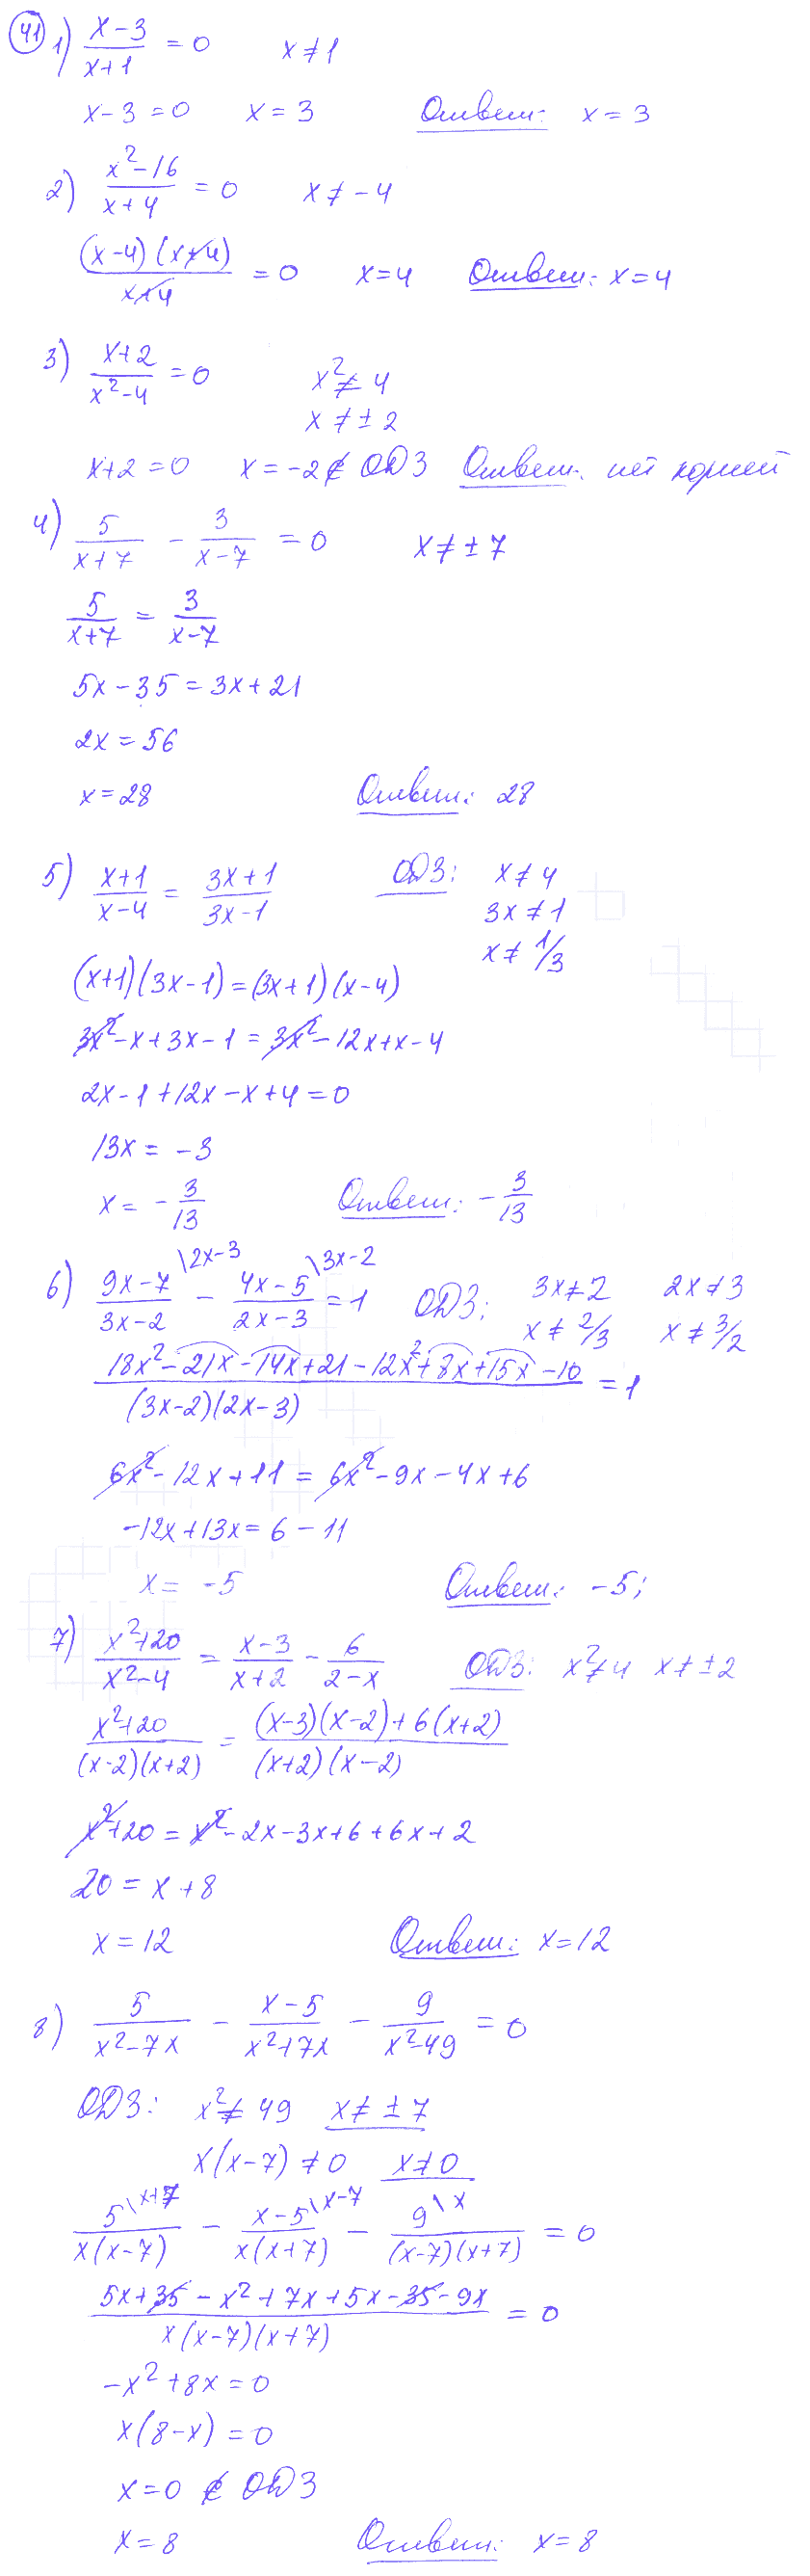 41 1) (x-3)/(x+1) = 0   x ≠ 1
x-3=0   x=3   Ответ: x=3
2) (x²-16)/(x+4) = 0   x ≠ -4
((x-4)(x+4))/(x+4) = 0   x=4   Ответ: x=4
3) (x+2)/(x²-4) = 0   x² ≠ 4
x ≠ ±2
x+2=0   x=-2 ∉ ОДЗ   Ответ: нет корней
4) 5/(x+7) - 3/(x-7) = 0   x ≠ ±7
5/(x+7) = 3/(x-7)
5x-35=3x+21
2x=56
x=28   Ответ: 28
5) (x+1)/(x-4) = (3x+1)/(3x-1)   ОДЗ: x ≠ 4
3x ≠ 1
x ≠ 1/3
(x+1)(3x-1)=(3x+1)(x-4)
3x²-x+3x-1=3x²-12x+x-4
2x-1+12x-x+4=0
13x=-3
x=-3/13   Ответ: -3/13
6) (9x-7)/(3x-2) \2x-3 - (4x-5)/(2x-3) \3x-2 = 1   ОДЗ: 3x ≠ 2   2x ≠ 3
x ≠ 2/3   x ≠ 3/2
(18x²-21x-14x+21-12x²+8x+15x-10)/((3x-2)(2x-3)) = 1
6x²-12x+11=6x²-9x-4x+6
-12x+13x=6-11
x=-5   Ответ: -5;
7) (x²+20)/(x²-4) = (x-3)/(x+2) - 6/(2-x)   ОДЗ: x² ≠ 4   x ≠ ±2
(x²+20)/((x-2)(x+2)) = ((x-3)(x-2)+6(x+2))/((x+2)(x-2))
x²+20=x²-2x-3x+6+6x+2
20=x+8
x=12   Ответ: x=12
8) 5/(x²-7x) - (x-5)/(x²+7x) - 9/(x²-49) = 0
ОДЗ: x² ≠ 49   x ≠ ±7
x(x-7) ≠ 0   x ≠ 0
5\x+7/(x(x-7)) - x-5\x-7/(x(x+7)) - 9\x/((x-7)(x+7)) = 0
(5x+35-x²+7x+5x-35-9x)/(x(x-7)(x+7)) = 0
-x²+8x=0
x(8-x)=0
x=0 ∉ ОДЗ
x=8   Ответ: x=8